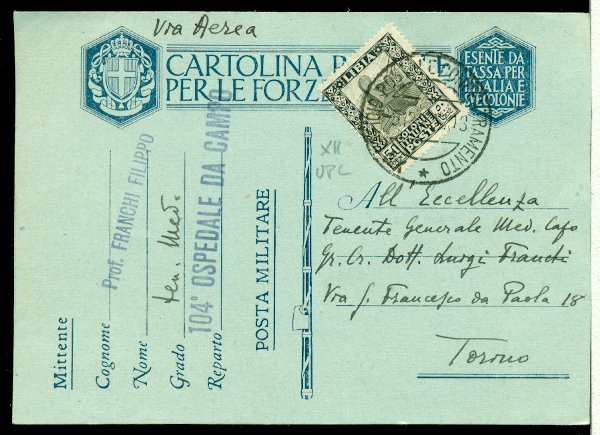 Via Aerea
CARTOLINA P
PER LE FORZE
ESENTE DA
TASSA PER
ITALIA E
COLONIE
LIBIA
COLONIE
POSTE
XII
UPC
Mittente
Cognome
Prof. FRANCHI FILIPPO
Nome
Grado
ten. Med.
Reparto
104° OSPEDALE DA CAMPO
POSTA MILITARE
All'Eccellenza
Tenente Generale Med. Capo
Gr. Cr. Dott. Luigi Franchi
Via S. Francesco da Paola 18
Torino